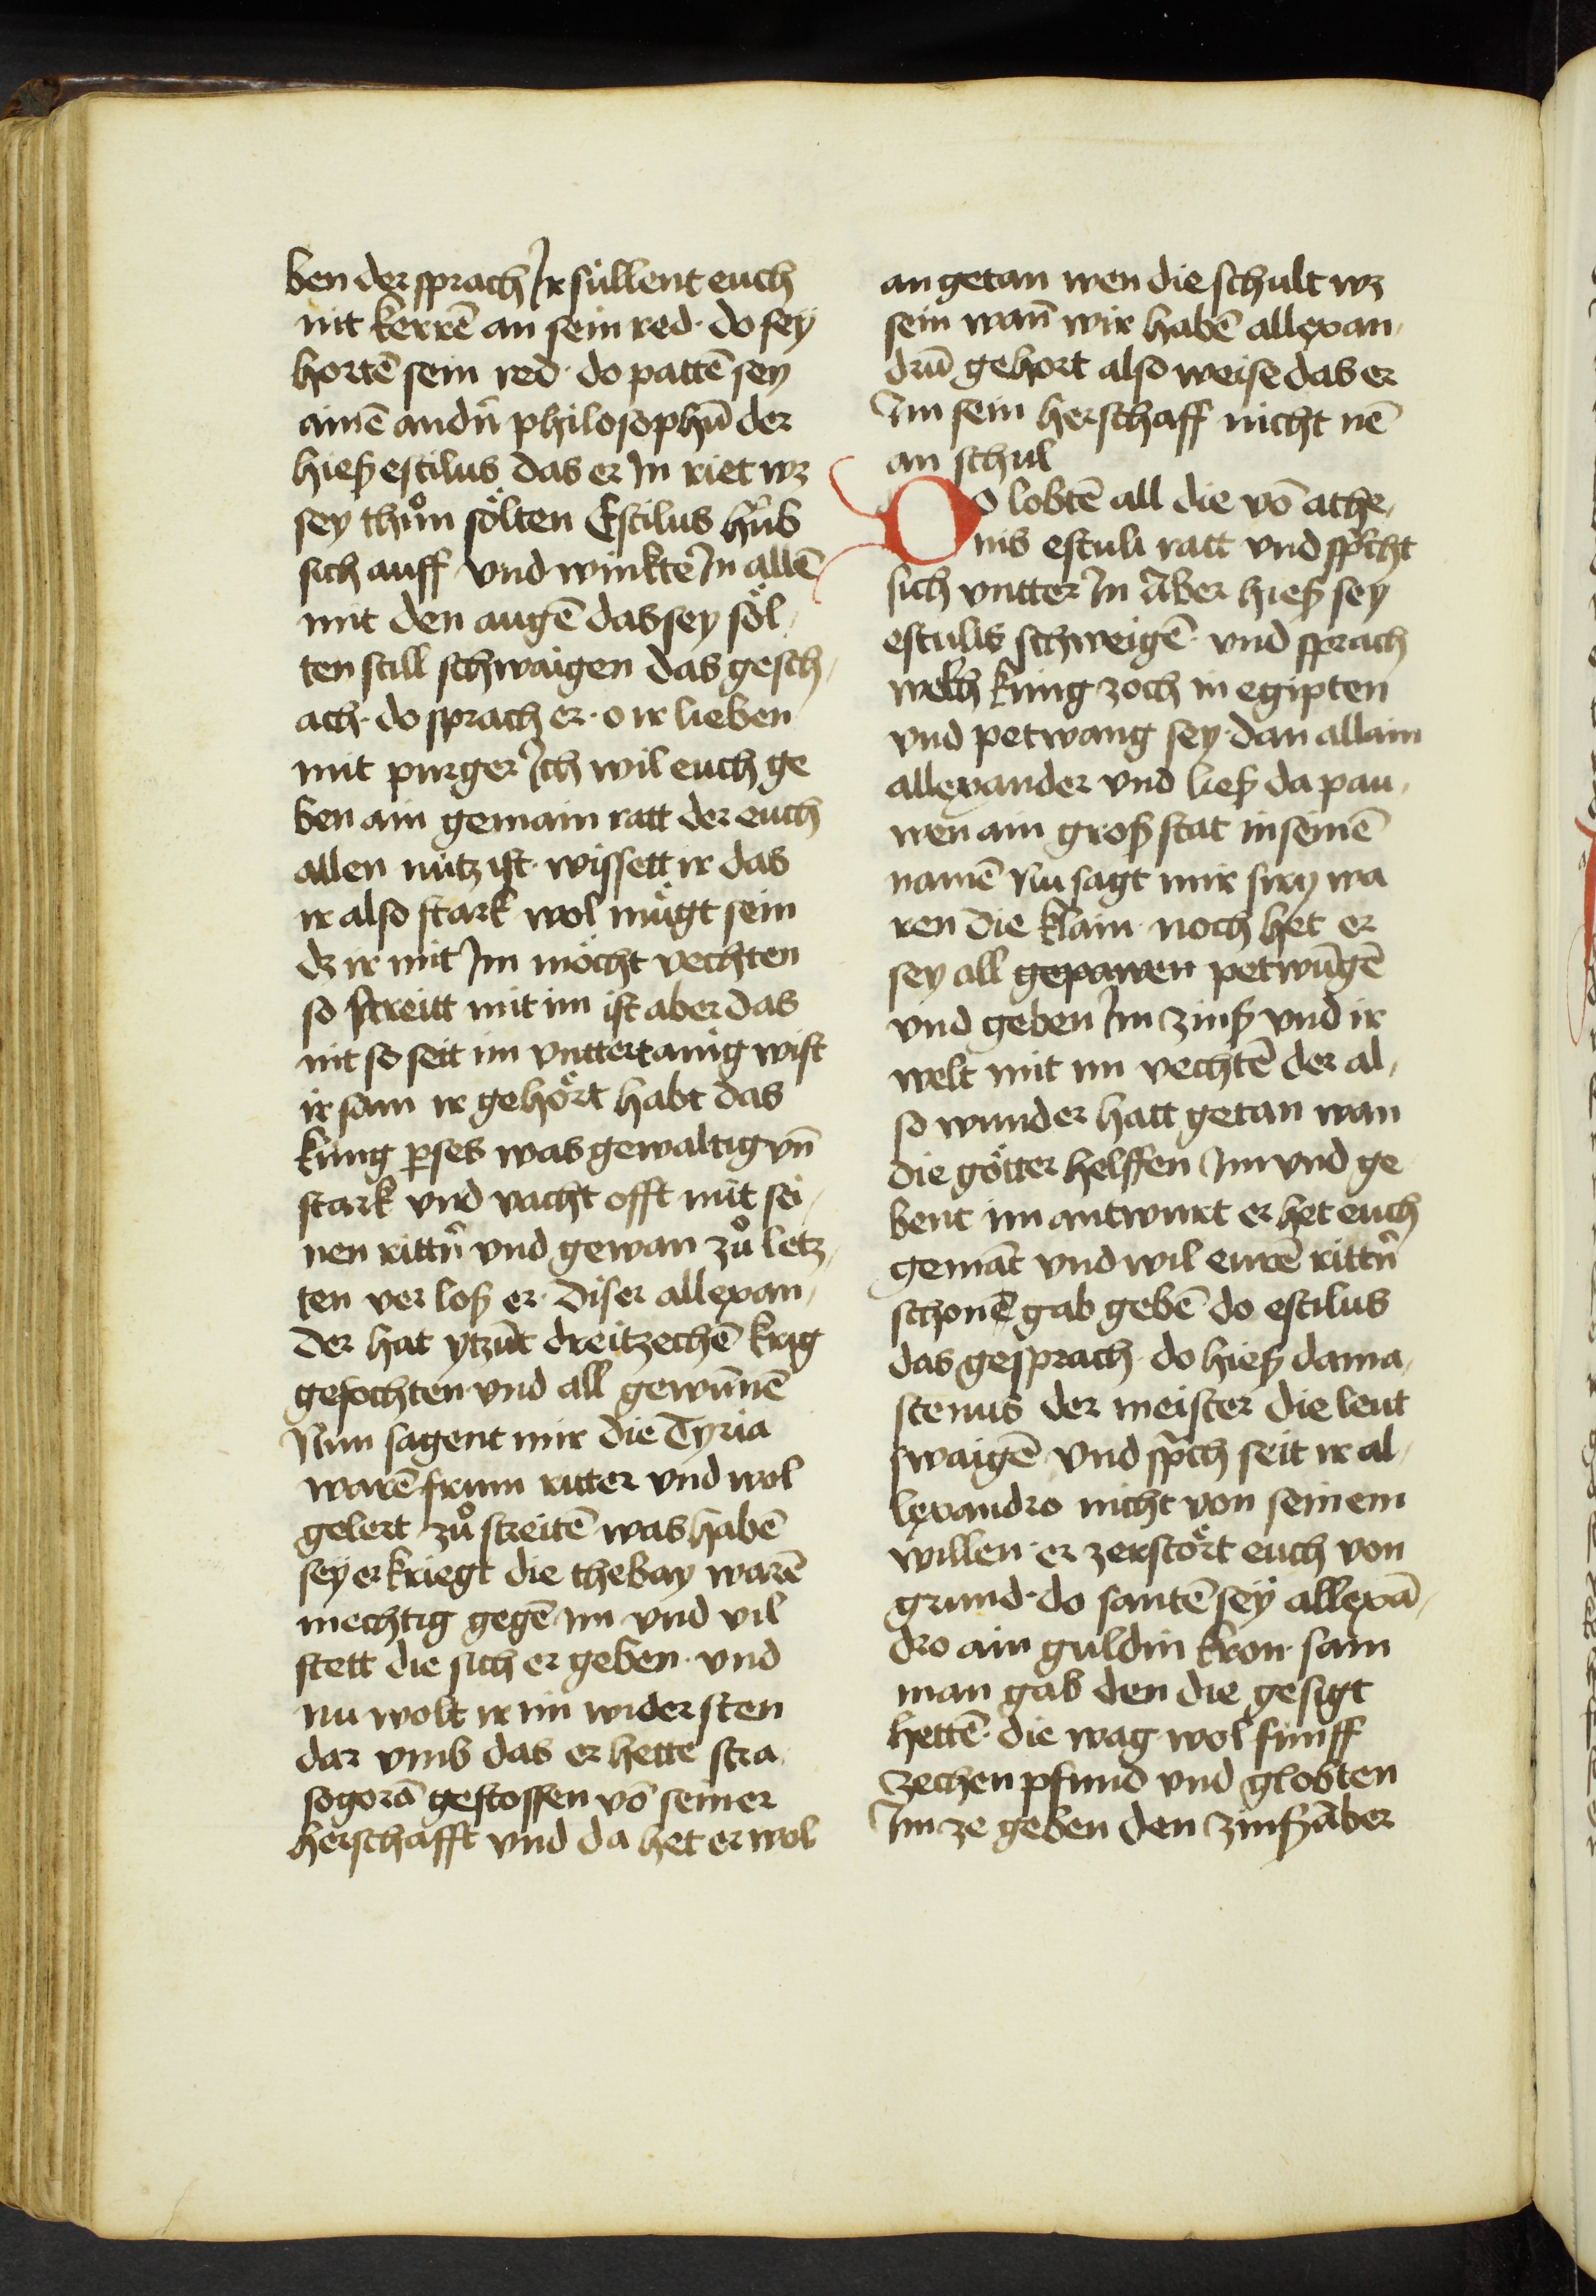 ben der sprach Ir süllent euch
nit kerrē an sein red · do sey
hortē sein red · do pattē sey
ainē andn̄ philosophū der
hieß estilus das er In riet wz
sey thůn sölten Estilus hůb
sich auff und winkte In allē
mit den augē das sey söl,
ten still schwaigen das gesch,
ach · do sprach er · o ir lieben
mit purger Ich wil euch ge
ben ain gemain ratt der euch
allen nütz ist · wissett ir das
ir also stark wol mügt sein
dz ir mit Im möcht vechten
so streitt mit im ist aber das
nit so seit im vnttertanig wist
ir sam ir gehört habt das
kúng pses was gewaltig vn̄
stark vnd vacht offt mit sei,
nen rittn̄ vnd gewan zů letz,
ten ver loß er · diser allexan,
der hat ytzūt dreitzechē krig
gefochten · vnd all gewūnē
Nun sagent mir die Tyria
warē frum ritter vnd wol
gelert zů streitē was habē
sey erkriegt die thebay warē
mechtig gegē im vnd vil
stett die sich er geben · vnd
nu wolt ir im wider sten
dar vmb das er hette stra,
sogorā gestossen vō seiner
herschafft vnd da het er wol
an getan wen die schult wz
sein wan̄ wir habē allexan,
drū gehort also weise das er
Im sein herschaff nicht nē
an schul
Do lobtē all die vō athe,
nis estuli ratt vnd sp̄cht
sich vntter In Aber hieß sey
estulis schweigē · vnd sprach
welch kúng zoch in egipten
vnd petwang sey · dan allain
allexander vnd ließ da pau,
wen ain groß stat in seinē
namē Nu sagt mir siry wa
ren die klain · noch het er
sey all gepawen petwūgē
vnd geben Im zinß vnd ir
welt mit im vechtē der al,
so wunder hatt getan wan
die götter helffen Im vnd ge
bent im antwurt er het euch
gemāt vnd wil eurē rittn̄
schonē gab gebē do estilus
das gesprach · do hieß dama,
stenus der meister die leut
swaigē vnd sp̄ch seit ir al,
lexandro nicht von seinem
willen · er zerstört euch von
grund · do santē sey allexā,
dro ain guldin kron · sam
man gab den die gesigt
hettē · die wag wol funff
zechen pfund vnd globten
Im ze geben den zinß Aber